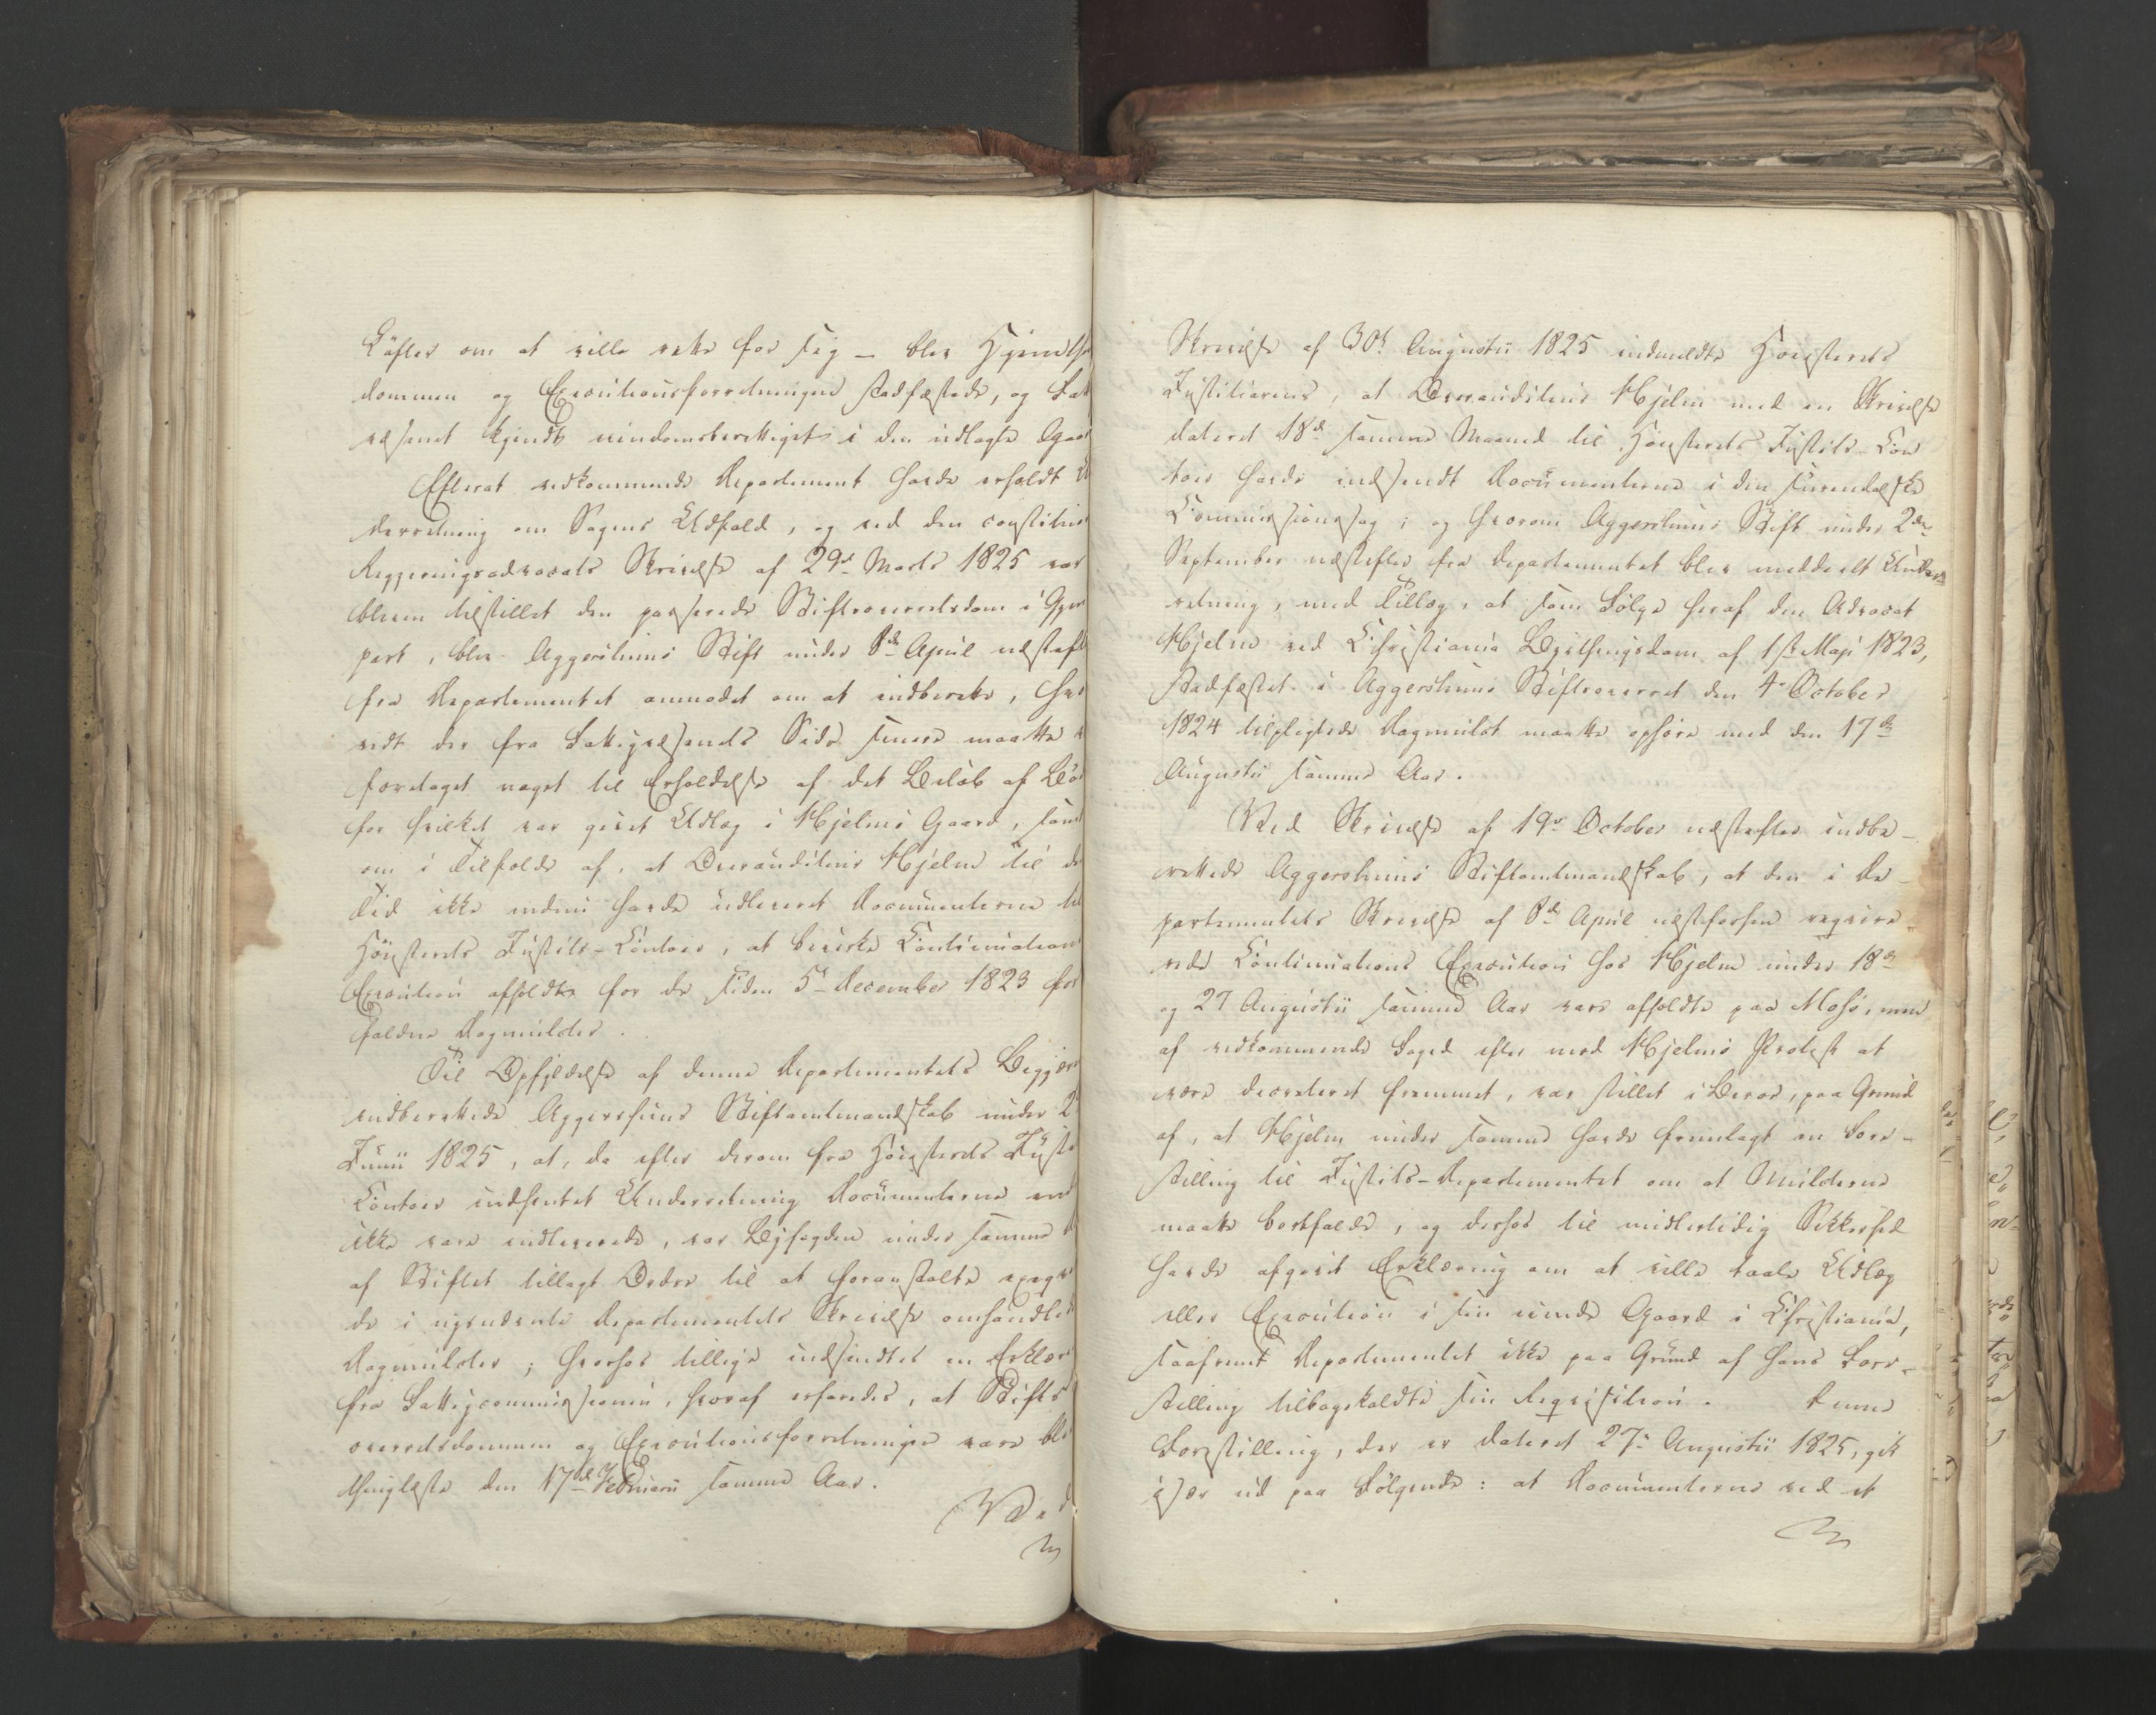 Løfter om at ville vette for sig — blev Hjemthi
dommen og Executionsforretningen stadfæstede, og Fat
væsenet kjendt eiendomsberettiget i den udlagte Gaar
Efterat vedkommende Departement havde erholdt U
derretning om Sagens Udfald, og ved den constitue
Regjeringsadvocats Skrivelse af 29de Marts 1825 var
bleven tilstillet den passerede Stiftsoverretsdom i Gjen
part, blev Aggershuus Stift under 8de April næsteft
fra Departementet anmodet om at indberette, hvo
vidt der fra Fattigvæsenets Side senere maatte v
foretaget noget til Erholdelse af det Beløb af Bød
for hvilket var givet Udlæg i Hjelms Gaard, sam
om i Tilfælde af, at Overauditeur Hjelm til de
Tid ikke endnu havde udleveret Documenterne til
Høiesterets Justits-Contoir, at bevirke Continuations
Execution afholdt for de siden 5te December 1823 for
faldne Dagmulcter.
Til Opfyldelse af denne Departementets Begjæri
indberettede Aggershuus Stiftamtmandskab under 2
Junii 1825, at, da efter derom fra Høiesterets Justi
Contoir indhentet Underretning Documenterne end
ikke vare indleverede, var Byfogden under samme D
af Stiftet tillagt Ordre til at foranstalte exeqve
de i nysnævnte Departementets Skrivelse omhandled
Dagmulcter; hvorhos tillige indsendtes en Erklæri
fra Fattigcommissionen, hvoraf erfaredes, at Stifts
overretsdommen og Executionsforretningen vare ble
thinglæste den 17de Februarii samme Aar.
Ved
Skrivelse af 30te Augusti 1825 indmeldte Høiesterets
Justitiarius, at Overauditeur Hjelm med en Skrivelse
dateret 18de samme Maaned til Høiesterets Justits-Con
toir havde indsendt Documenterne i den Surendalske
Commissionssag; og hvorom Aggershuus Stift under 2den
September næstefter fra Departementet blev meddeelt Under
retning, med Tillæg, at som Følge heraf den Advocat
Hjelm ved Christiania Byethingsdom af 1ste Maji 1823,
stadfæstet i Aggershuus Stiftsoverret den 4de October
1824 tilpligtede Dagmulct maatte ophøre med den 17de
Augusti samme Aar.
Ved Skrivelse af 19de October næstefter indbe-
rettede Aggershuus Stiftamtmandskab, at den i De-
partementets Skrivelse af 8de April næstforhen reqvire-
rede Continuations Execution hos Hjelm under 18de
og 27 Augustii samme Aar vare afholdte paa Moss, men
af vedkommende Foged efter mod Hjelms Protest at
være decreteret fremmet, var stillet i Beroe, paa Grund
af, at Hjelm under samme havde fremlagt en Fore-
stilling til Justits-Departementet om at Mulcterne
maatte bortfalde, og derhos til midlertidig Sikkerhed
havde afgivet Erklæring om at ville taale Udlæg
eller Execution i sin eiende Gaard i Christiania,
saafremt Departementet ikke paa Grund af hans Fore-
stilling tilbagekaldte sin Reqvisition. Denne
Forestilling, der er dateret 27de Augustii 1825, gik
især ud paa Følgende: at Documenterne ved et